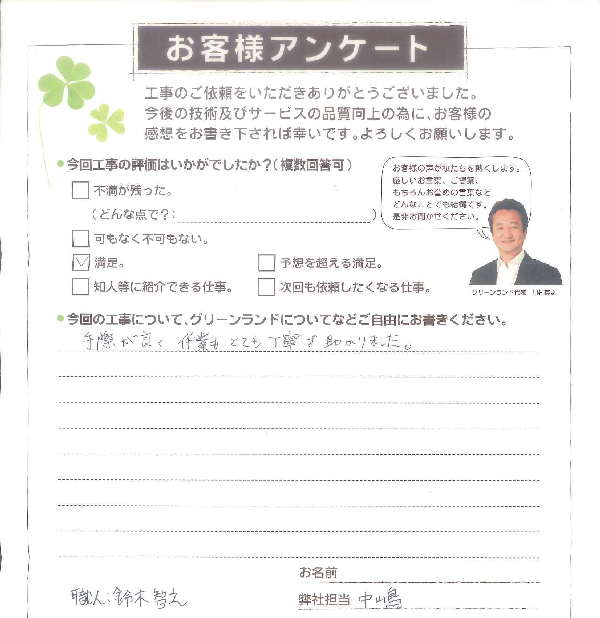 お客様アンケート
工事のご依頼をいただきありがとうございました。
今後の技術及びサービスの品質向上の為に、お客様の
感想をお書き下されば幸いです。よろしくお願いします。
●今回工事の評価はいかがでしたか?(複数回答可)
お客様の声が私たちを熱くします。
厳しいお言葉、ご提案、
もちろんお誉めの言葉など
どんなことでも結構です。
是非お聞かせください。
不満が残った。
(どんな点で?: )
可もなく不可もない。
満足。
予想を超える満足。
知人等に紹介できる仕事。
次回も依頼したくなる仕事。
グリーンランド代表
●今回の工事について、グリーンランドについてなどご自由にお書きください。
手際が良く 作業もとても丁寧で助かりました。
お名前
職人:鈴木智之
弊社担当 中嶋